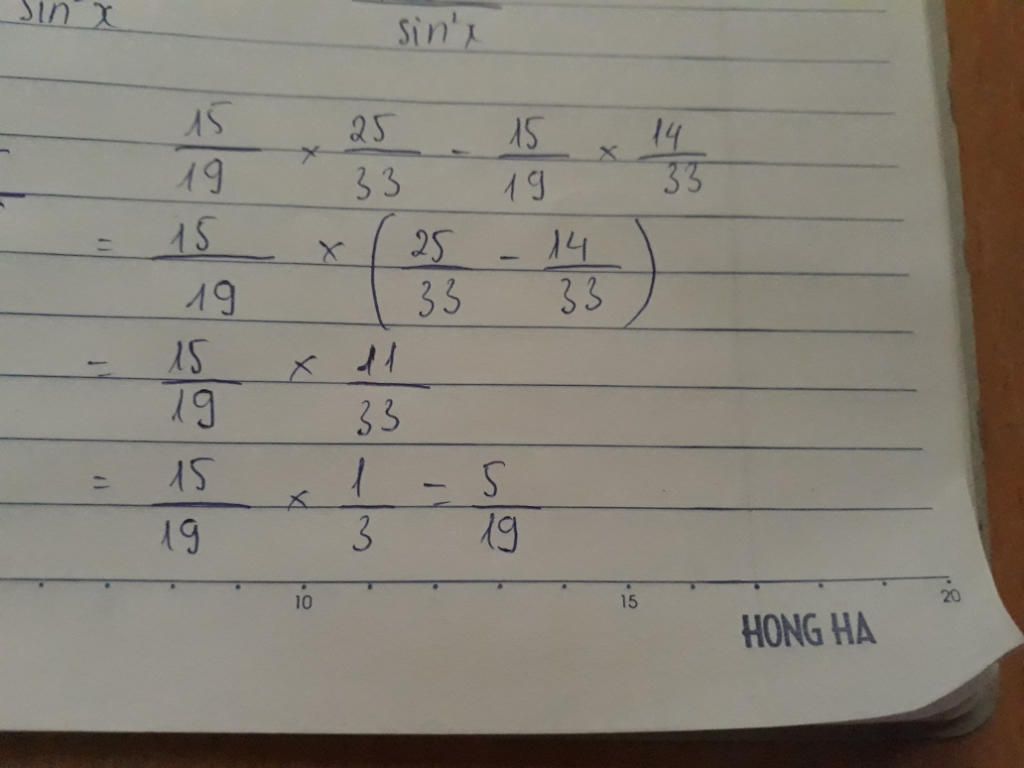 sin² x
sin² x
15/19 × 25/33 - 15/19 × 14/33
= 15/19 × (25/33 - 14/33)
= 15/19 × 11/33
= 15/19 × 1/3 = 5/19
10 15 20
HONG HA